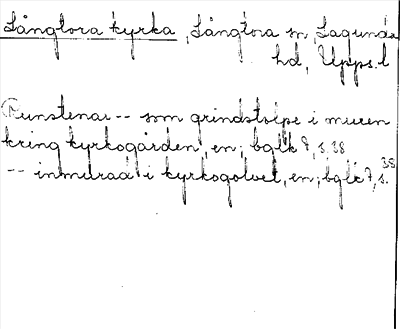 Långtora kyrka, Långtora sn, Lagunda
hd, Upps. l
Runstenar -- som grindstolpe i muren
kring kyrkogården, en; bglk 8, s. 38
-- inmurad i kyrkogolvet, en; bglk 7, s. 38